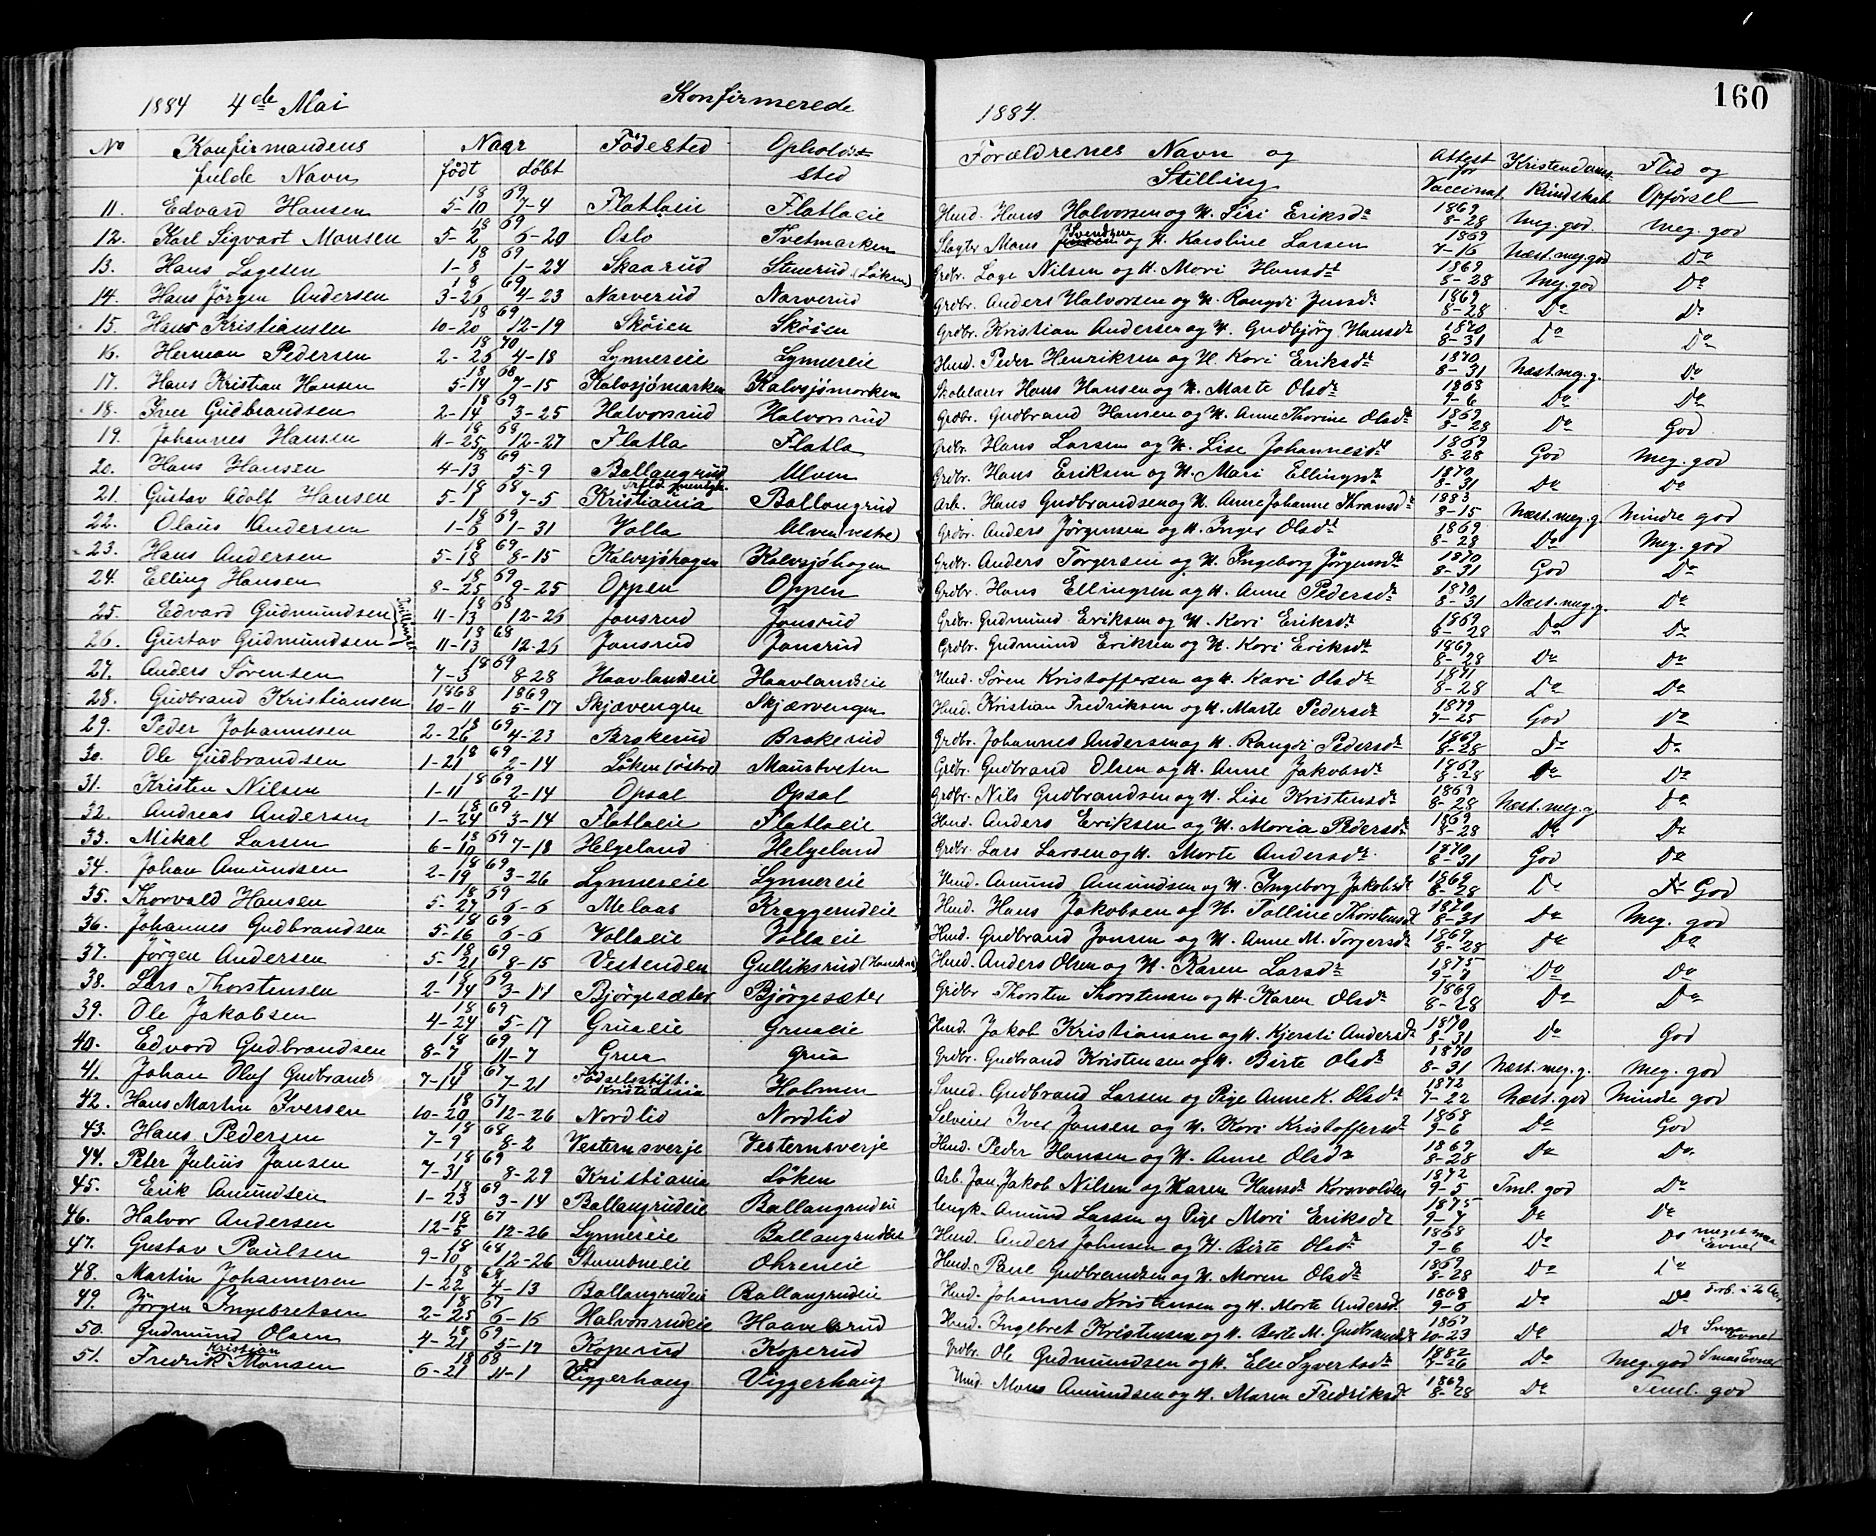 160
1884 4de Mai Konfirmerede 1884.
No Konfirmandens fulde Navn Naar født døbt Fødested Opholdssted Forældrenes Navn og Stilling Attest for Vaccinat. Kristendoms Kundskab Flid og Opførsel
11. Edvard Hansen 5-10 1869 7-4 Flatlaeie Flatlaeie Husd. Hans Halvorsen og H. Siri Eriksdr 1869 8-28 Meg. god Meg. god
12. Karl Sigvart Monsen 5-2 1869 6-20 Oslo Tvetmarken Slagter Mons Svendsen og H. Karoline Larsen 1869 7-16 Næst. meg. god Do
13. Hans Lagesen 1-8 1869 1-24 Skaarud Stuerud (Løken) Grdbr. Lage Nilsen og H. Mari Hansdt 1869 8-28 Meg. god Do
14. Hans Jørgen Andersen 3-26 1869 4-23 Narverud Narverud Grdbr. Anders Halvorsen og H. Rangdi Jensdt 1869 8-28 Do Do
15. Hans Kristiansen 10-20 1869 12-19 Skøien Skøien Grdbr. Kristian Andersen og H. Gudbjørg Hansdt 1870 8-31 Do Do
16. Herman Pedersen 2-25 1870 4-18 Lynnereie Lynnereie Husd. Peder Henriksen og H. Kari Eriksdt 1870 8-31 Næst. meg. g. Do
17. Hans Kristian Hansen 5-14 1868 7-15 Kalvsjømarken Kalvsjømarken Skolelærer Hans Hansen og H. Marte Olsdt 1868 9-6 Do Do
18. Iver Gudbrandsen 2-14 1869 3-25 Halvorsrud Halvorsrud Grdbr. Gudbrand Hansen og H. Anne Thorine Olsdt 1869 8-28 Do God
19. Johannes Hansen 11-25 1868 12-27 Flatla Flatla Grdbr. Hans Larsen og H. Lise Johannesdt 1869 8-28 God Meg. god
20. Hans Hansen 4-13 1869 5-9 Ballangrud Ulven Grdbr. Hans Eriksen og H. Mari Ellingsdt 1870 8-31 Do Do
21. Gustav Adolf Hansen 5-1 1868 7-5 Kristiania Ballangrud Arb. Hans Gudbrandsen og H. Anne Johanne 1883 8-15 Næst. meg. g. Mindre god
22. Olaus Andersen 1-3 1869 1-31 Volla Ulven (vestre) Grdbr. Anders Jørgensen og H. Inger Olsdt 1869 8-28 Do Meg. god
23. Hans Andersen 5-18 1869 8-15 Kalvsjøhagen Kalvsjøhagen Grdbr. Anders Torgersen og H. Ingeborg Jørgensdt 1870 8-31 God Do
24. Elling Hansen 8-25 1869 9-25 Oppen Oppen Grdbr. Hans Ellingsen og H. Anne Pedersdt 1870 8-31 Næst. meg. g. Do
25. Edvard Gudmundsen } Tvillinger 11-13 1868 12-26 Jonsrud Jonsrud Grdbr. Gudmund Eriksen og H. Kari Eriksdt 1869 8-28 Do Do
26. Gustav Gudmundsen 11-13 1868 12-26 Jonsrud Jonsrud Grdbr. Gudmund Eriksen og H. Kari Eriksdt 1869 8-28 Do Do
27. Anders Sørensen 7-3 1869 8-28 Haavlandseie Haavlandseie Husd. Søren Kristoffersen og H. Kari Olsdt 1871 8-28 Do Do
28. Gudbrand Kristiansen 1868 10-11 1869 5-17 Skjævengen Skjærvengen Husd. Kristian Fredriksen og H. Marte Pedersdt 1879 7-25 God Do
29. Peder Johannesen 2-26 1869 4-23 Brokerud Brokerud Grdbr. Johannes Andersen og H. Rangdi Pedersdt 1869 8-28 Do Do
30. Ole Gudbrandsen 1-21 1869 2-14 Løken (østre) Maustveten Grdbr. Gudbrand Olsen og H. Anne Jakobsdt 1869 8-28 Do Do
31. Kristen Nilsen 1-11 1869 2-14 Opsal Opsal Grdbr. Nils Gudbrandsen og H. Lise Kristensdt 1869 8-28 Næst. meg. g. Do
32. Andreas Andersen 1-24 1869 3-14 Flatlaeie Flatlaeie Husd. Anders Eriksen og H. Maria Pedersdt 1869 8-28 Do Do
33. Mikal Larsen 6-10 1869 7-18 Helgeland Helgeland Grdbr. Lars Larsen og H. Marte Andersdt. 1870 8-31 God Do
34. Johan Amundsen 2-19 1869 3-26 Lynnereie Lynnereie Husd. Amund Amundsen og H. Ingeborg Jakobsdt 1869 8-28 Do Do God
35. Thorvald Hansen 5-27 1869 6-6 Melaas Kraggerudeie Husd. Hans Jakobsen og H. Tolline Thorstensdt 1870 8-31 Do Meg. god
36. Johannes Gudbrandsen 5-16 1869 6-6 Vollaeie Vollaeie Husd. Gudbrand Jonsen og H. Anne M. Torgersdt 1869 8-28 Do Do
37. Jørgen Andersen 5-21 1869 8-15 Vestenden Gulliksrud Husd. Anders Olsen og H. Karen Larsdt 1875 9-7 Do Do
38. Lars Thorstensen 2-14 1869 3-11 Bjørgesæter Bjørgesæter Grdbr Thorsten Thorstensen og H. Karen Olsdt 1869 8-28 Do Do
39. Ole Jakobsen 4-24 1869 5-17 Grueeie Grueeie Husd. Jakob Kristiansen og H. Kjersti Andersdt 1870 8-31 Do God
40. Edvard Gudbrandsen 8-7 1869 11-7 Grua Grua Grdbr. Gudbrand Kristensen og H. Birte Olsdt 1870 8-31 Næst. meg. g. Meg. god
41. Johan Oluf Gudbrands 7-14 1867 7-21 Fødselsstift. Kristiania Holmen Smed. Gudbrand Larsen og Pige Anne K. Olsdt 1872 7-22 Næst. god Mindre god
42. Hans Martin Iversen 10-20 1867 12-26 Nordlid Nordlid Selveier Iver Jonsen og H. Kari Kristoffersdt 1868 9-6 Do God
43. Hans Pedersen 7-9 1868 8-2 Vesternsverje Vesternsverje Husd. Peder Hansen og H. Anne Olsdt 1869 8-28 Do Do
44. Peter Julius Jansen 7-31 1869 8-29 Kristiania Løken Arb. Jan Jakob Nilsen og Karen Hansdt Korsvolden 1872 9-5 Tml. god Do
45. Erik Amundsen 1-23 1869 3-14 Ballangrudeie Ballangrudeie Ungk. Amund Larsen og Pige Mari Eriksdt 1875 9-7 Do Do
46. Halvor Andersen 12-5 1867 12-26 Lynnereie Ballangrudeie Husd. Anders Johnsen og H. Birte Olsdt 1868 9-6 Do Do meget smaa Evner
47. Gustav Paulsen 9-10 1868 12-26 Stumbneeie Ohreneie Husd. Paul Gudbrandsen og H. Maren Olsdt 1869 8-28 Do Do
48. Martin Johannesen 1-22 1868 4-13 Ballangrudeie Ballangrudeie Husd. Johannes Kristensen og H. Marte Andersdt 1868 9-6 Do Do
49. Jørgen Ingebretsen 2-25 1867 6-16 Halvorsrudeie Haavelsrud Husd. Ingebret Kristensen og H. Berte M. Gudbrandsdt 1867 10-23 Do Do Smaa Evner
50. Gudmund Olsen 4-21 1869 5-17 Koperud Koperud Grdbr. Ole Gudmundsen og H. Else Syvertsdt 1882 7-26 Do Meg. god Smaa Evner
51. Fredrik Kristian Monsen 6-21 1868 11-1 Viggerhaug Viggerhaug Husd. Mons Amundsen og H. Maren Fredriksdt 1869 8-28 Do Teml. god